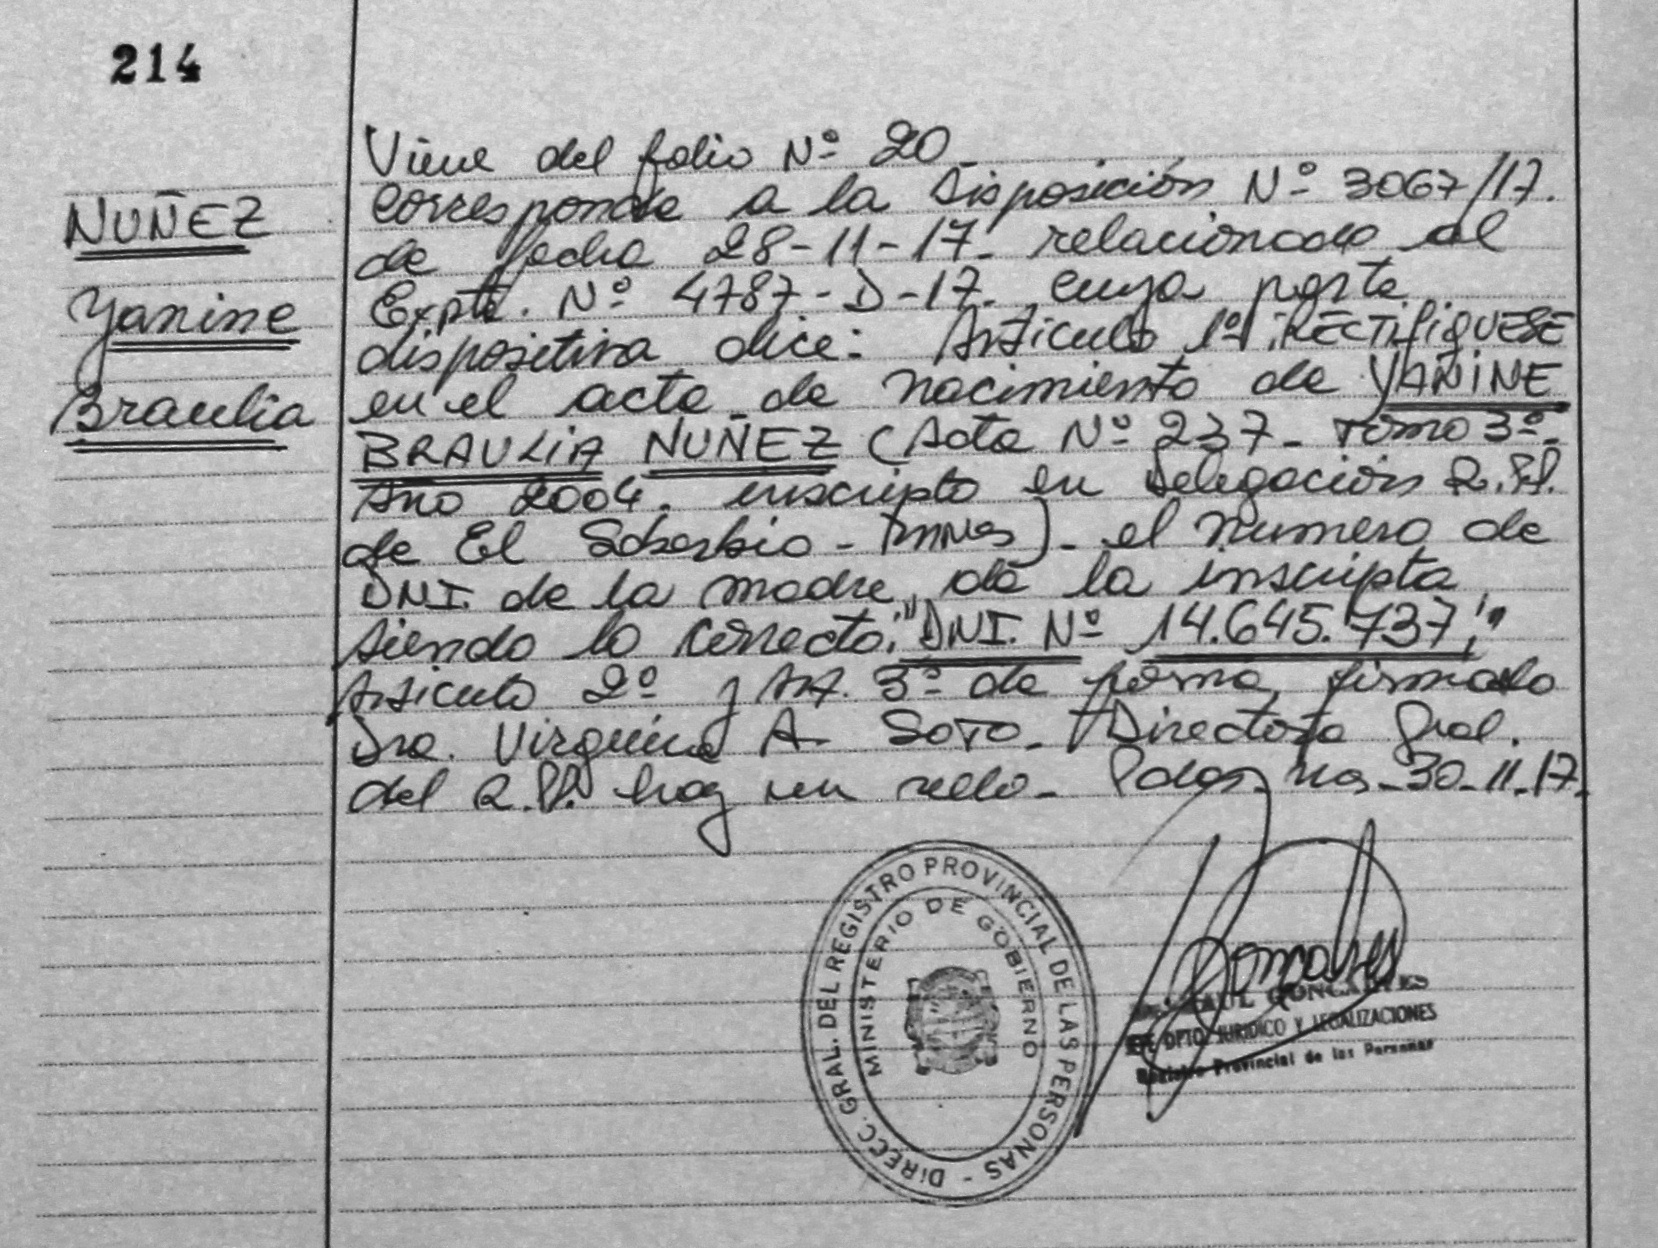 214
NUÑEZ
Yanine
Braulia
Viene del folio Nº 20-
Corresponde a la Disposición Nº 3067/17.
de fecha 28-11-17- relacionado al
Expte. Nº 4787-D-17- cuya parte
dispositiva dice: Articulo 1º: RECTIFIQUESE
en el acta de nacimiento de YANINE
BRAULIA NUÑEZ (Acta Nº 237- Tomo 3º-
Año 2004. inscripta en Delegación R.P.P.
de El Soberbio - Mnes)- el numero de
DNI. de la madre de la inscripta
siendo lo correcto: "DNI. Nº 14.645.737;"
Articulo 2º y Art. 3º de forma, firmado
Dra. Virginia A. SOTO- Directora Gral.
del R.P.P. hay un sello- Pdas. Mns-30-11-17.
DIRECC. GRAL. DEL REGISTRO PROVINCIAL DE LAS PERSONAS -
MINISTERIO DE GOBIERNO
RAUL GONCALVES
JEFE DPTO. JURIDICO Y LEGALIZACIONES
Registro Provincial de las Personas